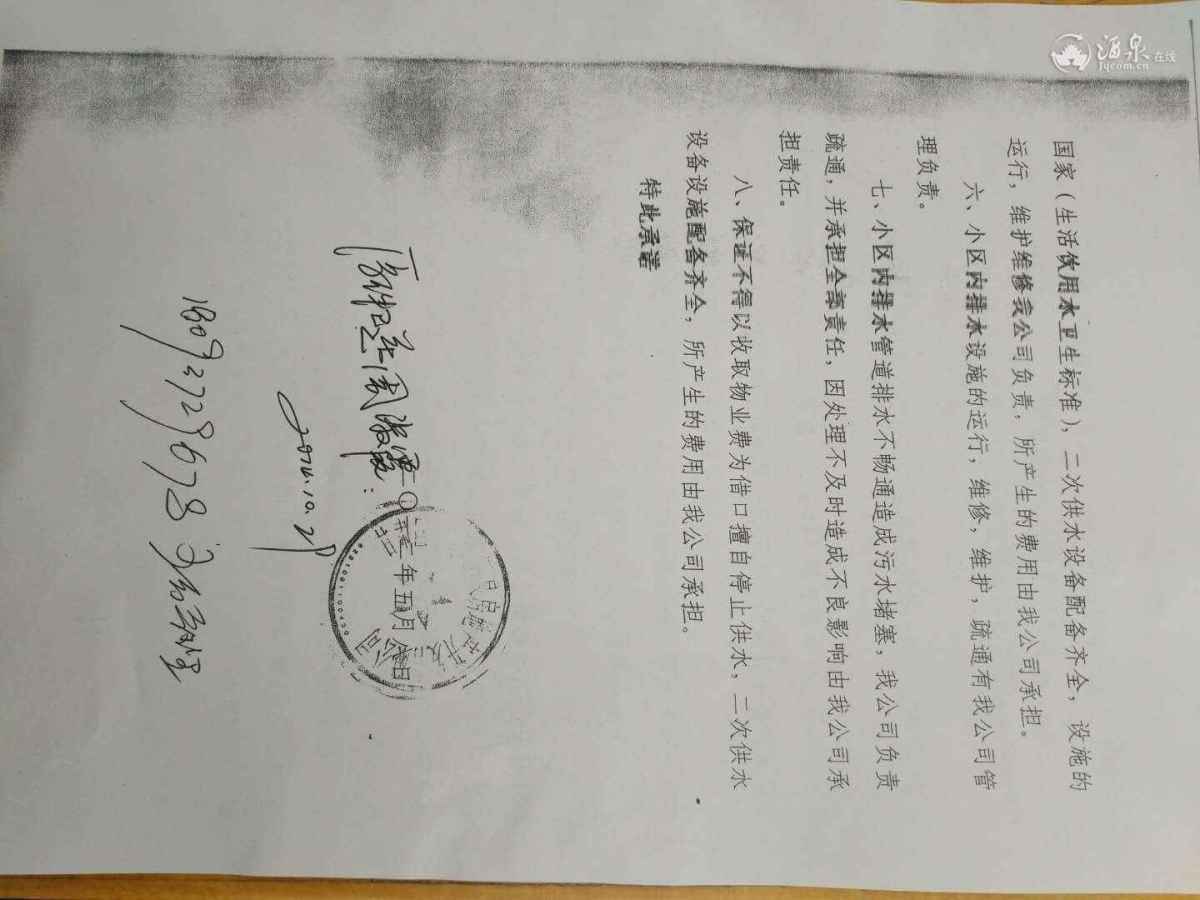 酒泉在线
Jqcom.cn
国家（生活饮用水卫生标准），二次供水设备配备齐全，设施的
运行，维护维修我公司负责，所产生的费用由我公司承担。
六、小区内排水设施的运行，维修，维护，疏通有我公司管
理负责。
七、小区内排水管道排水不畅通造成污水堵塞，我公司负责
疏通，并承担全部责任，因处理不及时造成不良影响由我公司承
担责任。
八、保证不得以收取物业费为借口擅自停止供水，二次供水
设备设施配备齐全，所产生的费用由我公司承担。
特此承诺
年五月 日
公司